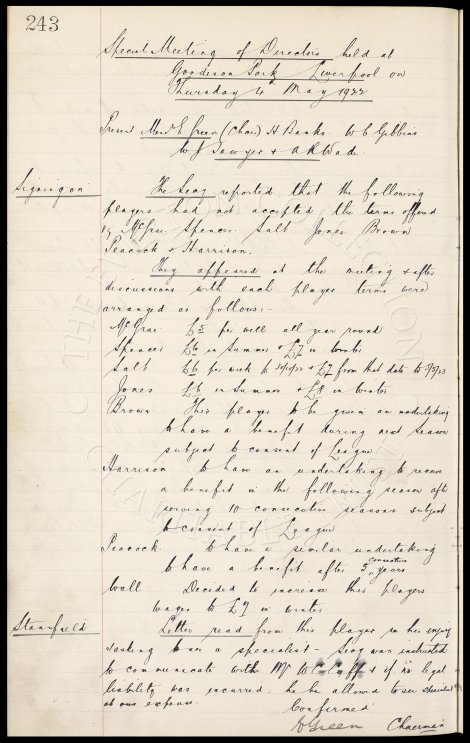 243
Special Meeting of Directors held at
Goodison Park Liverpool on
Thursday 4th May 1922
Present Messrs E Green (Chair) H Banks. W C Gibbins
W J Sawyer & A R Wade.
Signing on
The Secy reported that the following
players had not accepted the terms offered
by McGrae, Spencer, Salt Jones. Brown
Peacock & Harrison.
They appeared at the meeting & after
discussions with each player terms were
arranged as follows:-
McGrae £5 per week all year round
Spencer £6 in Summer & £7 in Winter
Salt £6 per week to & £7 from that date to 5/5/23
Jones £6 in Summer & £8 in Winter
Brown This player to be given an undertaking
to have a benefit during next season
subject to consent of League.
Harrison to have an undertaking to receive
a benefit in the following season after
serving 10 consecutive seasons subject
to consent of League
Peacock to have a similar undertaking
to have a benefit after 5 consecutive years
Wall Decided to increase this players
wages to £7 in winter
Stansfield
Letter read from this player re his injury
& asking to see a specialist - Secy was instructed
to communicate with Mr W Cuff & if no legal
liability was incurred he be allowed to see specialist
at our expense.
Confirmed
E Green Chairman